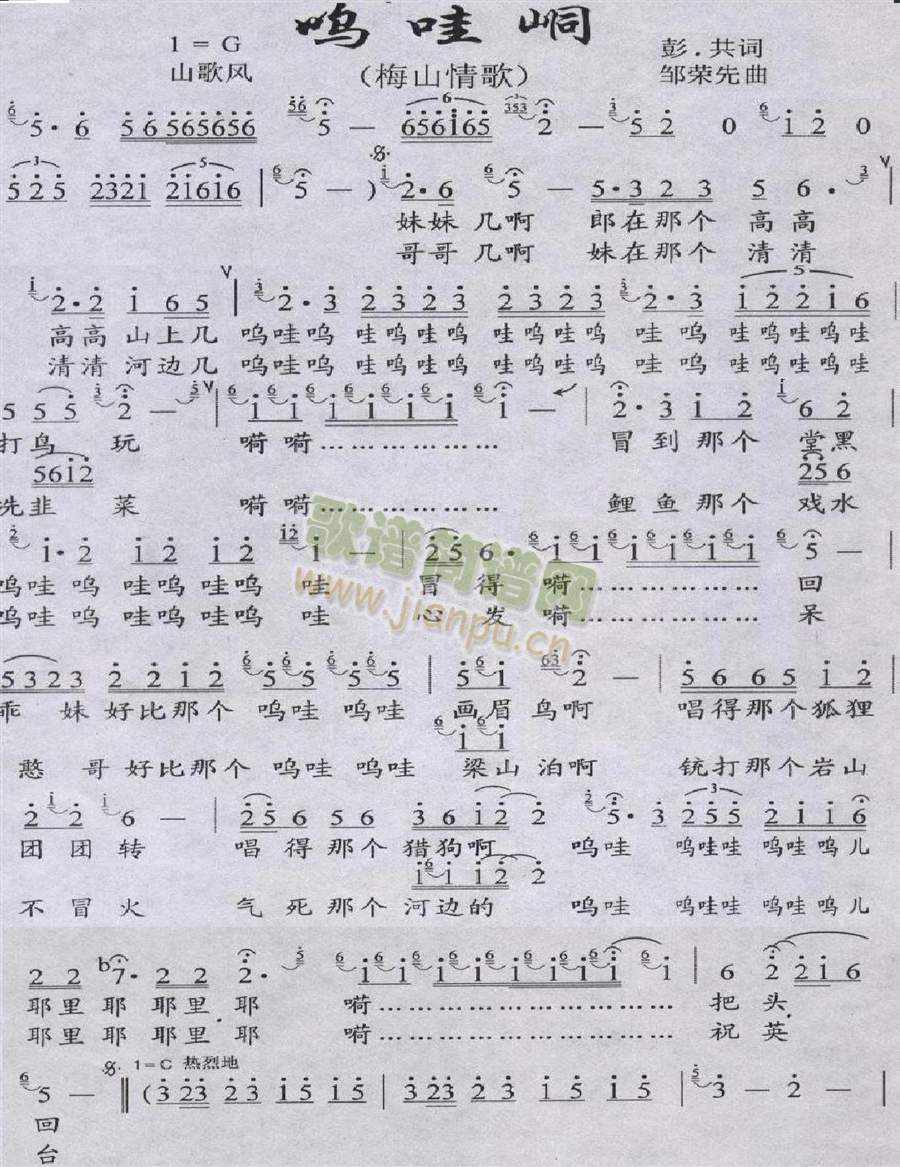 呜哇峒
1=G 彭.共词
山歌风 （梅山情歌） 邹荣先曲
妹妹 几啊 郎在那个 高高
哥哥 几啊 妹在那个 清清
高高 山上几 呜哇呜 哇呜哇呜 哇呜哇呜 哇 呜 哇呜哇呜哇
清清 河边几 呜哇呜 哇呜哇呜 哇呜哇呜 哇 呜 哇呜哇呜哇
打鸟 玩 嗬嗬……………… 冒到那个 堂黑
洗韭 菜 嗬嗬……………… 鲤鱼那个 戏水
歌谱简谱网
www.jianpu.cn
呜哇 呜 哇呜 哇呜 哇 冒得 嗬……………… 回
呜哇 呜 哇呜 哇呜 哇 心发 嗬……………… 呆
乖 妹好比那个 呜哇 呜哇 画眉鸟啊 唱得那个狐狸
憨 哥好比那个 呜哇 呜哇 梁山泊啊 铳打那个岩山
团团转 唱得那个猎狗啊 呜哇 呜哇哇 呜哇呜儿
不冒火 气死那个河边的 呜哇 呜哇哇 呜哇呜儿
耶里耶 耶里.耶 嗬……………………… 把头
耶里耶 耶里.耶 嗬……………………… 祝英
1=C 热烈地
回
台